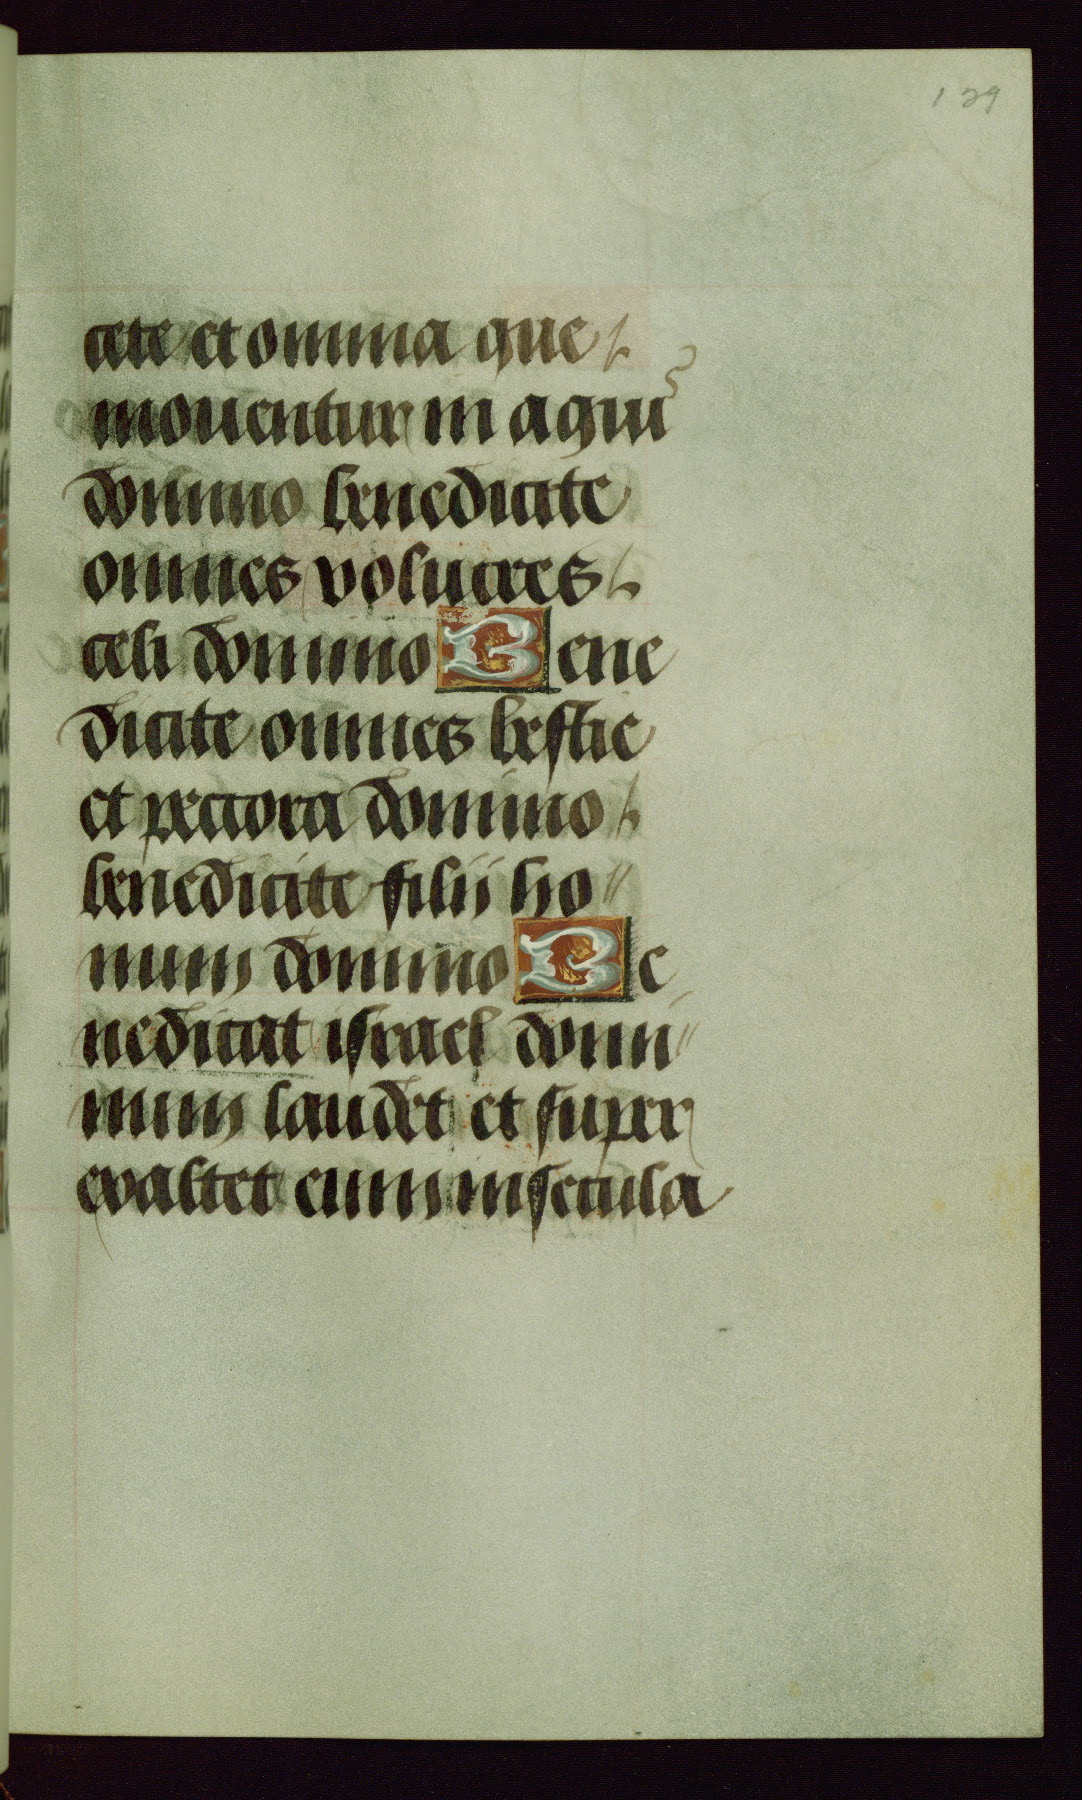 129
cete et omnia que
mouentur in aquis
domino benedicite
omnes volucres
celi domino Bene
dicite omnes bestie
et peccora domino
benedicite filii ho
minum domino Be
nedicat israel domi
num laudet et super
exaltet eum in secula